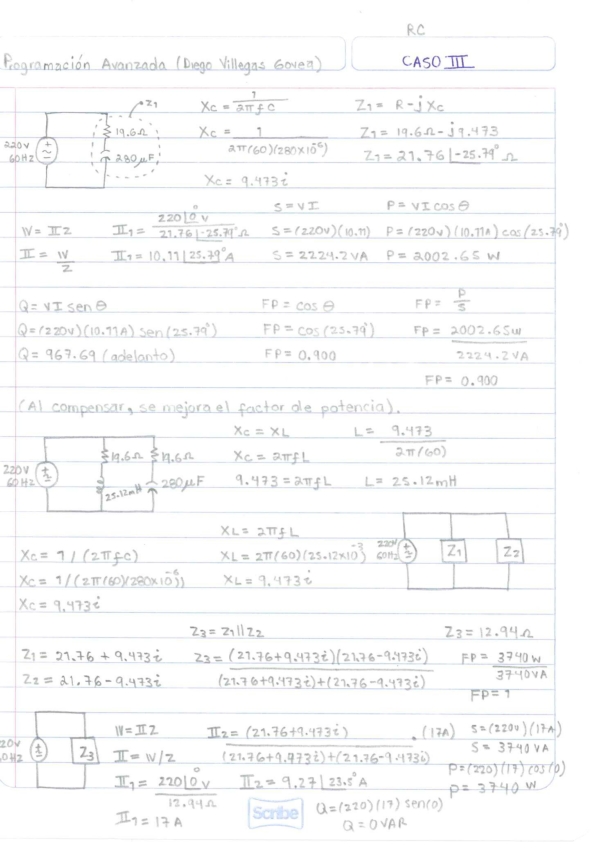 RC
Programación Avanzada (Diego Villegas Govea)
CASO III
220V
60Hz
19.6Ω
280μF
Z1
Xc = 1 / 2πfC
Xc = 1 / 2π(60)(280x10^-6)
Xc = 9.473i
Z1 = R-jXc
Z1 = 19.6Ω-j9.473
Z1 = 21.76 |-25.79° Ω
W = IIZ
II = W/Z
II1 = 220|0° V / 21.76|-25.79° Ω
II1 = 10.11|25.79° A
S = VI
S = (220V)(10.11)
S = 2224.2VA
P = VI cos θ
P = (220V)(10.11A) cos(25.79°)
P = 2002.65 W
Q = VI sen θ
Q = (220V)(10.11A) sen(25.79°)
Q = 967.69 (adelanto)
FP = cos θ
FP = cos(25.79°)
FP = 0.900
FP = P/S
FP = 2002.65W / 2224.2VA
FP = 0.900
(Al compensar, se mejora el factor de potencia).
220V
60Hz
19.6Ω
19.6Ω
25.12mH
280μF
Xc = XL
Xc = 2πfL
9.473 = 2πfL
L = 9.473 / 2π(60)
L = 25.12mH
Xc = 1/(2πfc)
Xc = 1/(2π(60)(280x10^-6))
Xc = 9.473i
XL = 2πfL
XL = 2π(60)(25.12x10^-3)
XL = 9.473i
220V
60Hz
Z1
Z2
Z1 = 21.76 + 9.473i
Z2 = 21.76 - 9.473i
Z3 = Z1||Z2
Z3 = (21.76+9.473i)(21.76-9.473i) / (21.76+9.473i)+(21.76-9.473i)
Z3 = 12.94Ω
FP = 3740W / 3740VA
FP = 1
20V
0Hz
Z3
W = IIZ
II = W/Z
II1 = 220|0° V / 12.94Ω
II1 = 17A
II2 = (21.76+9.473i) / (21.76+9.973i)+(21.76-9.473i) · (17A)
II2 = 9.27|23.5° A
S = (220V)(17A)
S = 3740VA
P = (220)(17) cos(0)
P = 3740 W
Scribe
Q = (220)(17) sen(0)
Q = 0VAR